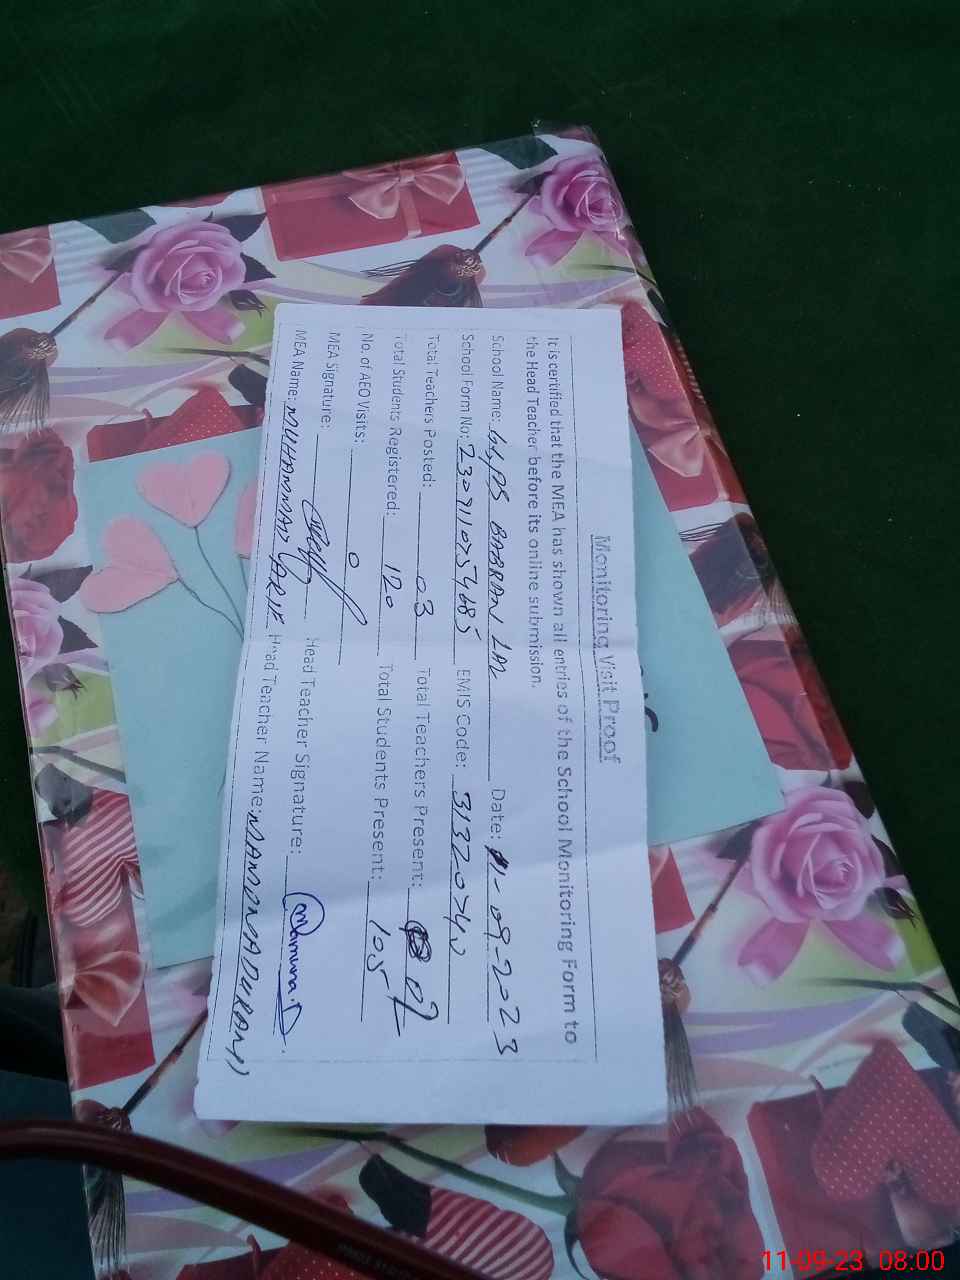 Monitoring Visit Proof
It is certified that the MEA has shown all entries of the School Monitoring Form to
the Head Teacher before its online submission.
School Name: GGPS BABRAN LAL Date: 11-09-2023
School Form No: 230911075468 EMIS Code: 31320740
Total Teachers Posted: 03 Total Teachers Present: 02
Total Students Registered: 120 Total Students Present: 105
No. of AEO Visits: 0
MEA Signature: Head Teacher Signature: Mamuna.D
MEA Name: MUHAMMAD ARIF Head Teacher Name: MAMONA DURANI
11-09-23 08:00